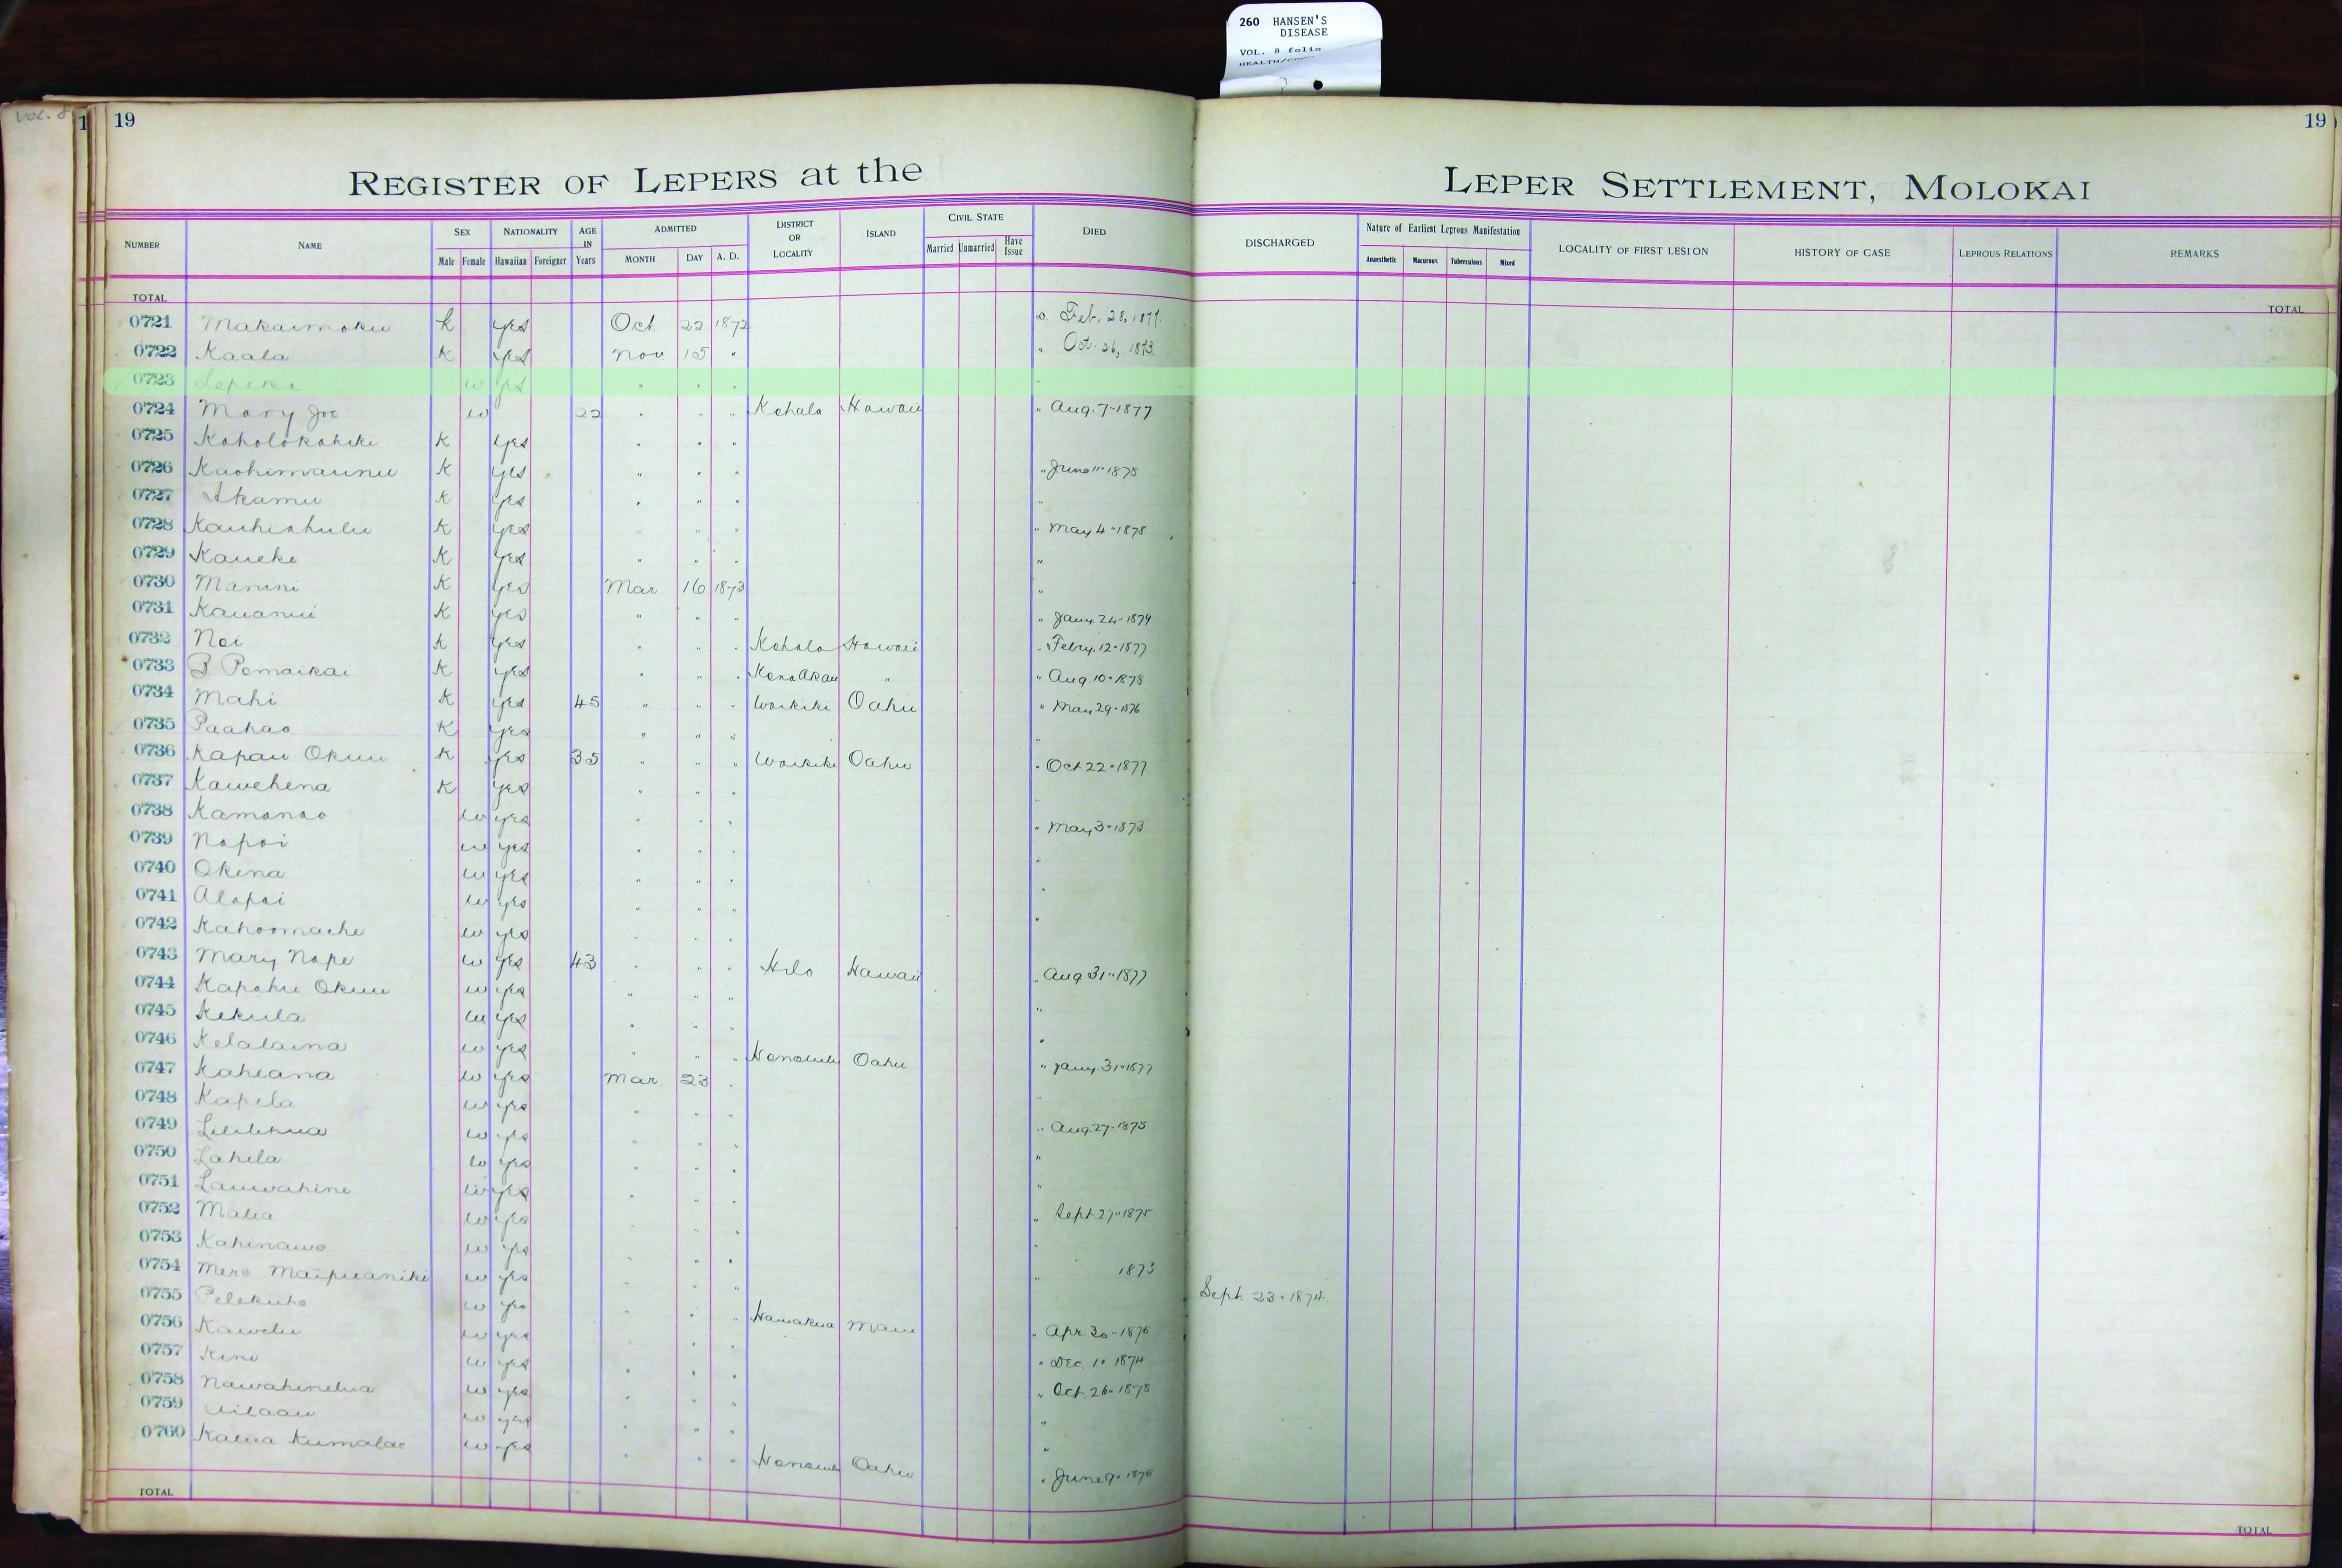 260 HANSEN'S
DISEASE
VOL. 8 folio
Vol. 8
1 19 19
REGISTER OF LEPERS at the LEPER SETTLEMENT, MOLOKAI
NUMBER NAME SEX Male Female NATIONALITY Hawaiian Foreigner AGE IN Years ADMITTED MONTH DAY A. D. DISTRICT OR LOCALITY ISLAND CIVIL STATE Married Unmarried Have Issue DIED DISCHARGED Nature of Earliest Leprous Manifestation Anaesthetic Macurous Tuberculous Mixed LOCALITY OF FIRST LESION HISTORY OF CASE LEPROUS RELATIONS REMARKS
TOTAL TOTAL
0721 Makaimoku k yes Oct 22 1872 Feb. 28, 1877.
0722 Kaala K yes Nov 15 " " Oct. 26, 1873.
0723 Lepeka w yes " " " "
0724 Mary Joe w 22 " " " Kohala Hawaii " Aug. 7" 1877
0725 Koholokahiki K yes " " "
0726 Kaohimaunu K yes " " " " June 11" 1878
0727 Akamu K yes " " " "
0728 Kauhiahulu K yes " " " " May 4" 1878
0729 Kaueke K yes " " " "
0730 Manini K yes Mar 16 1873 "
0731 Kauanui K yes " " " " Jany. 24" 1879
0732 Noi K yes " " " Kohala Hawaii " Febry. 12" 1877
0733 B Pomaikai K yes " " " Kona Akau " " Aug 10" 1878
0734 Mahi K yes 45 " " " Waikiki Oahu " May 29" 1876
0735 Paahao K yes " " " "
0736 Kapau Okuu K yes 35 " " " Waikiki Oahu " Oct 22" 1877
0737 Kawehena K yes " " " "
0738 Kamanao w yes " " " " May 3" 1873
0739 Napoi w yes " " " "
0740 Okina w yes " " " "
0741 Alapai w yes " " " "
0742 Kahoomache w yes " " "
0743 Mary Nape w yes 43 " " " Hilo Hawaii " Aug 31" 1877
0744 Kapahu Okuu w yes " " " "
0745 Kekula w yes " " " "
0746 Kelalaina w yes " " " Honolulu Oahu " Jany. 31" 1877
0747 Kaheana w yes Mar. 23 " "
0748 Kapela w yes " " " " Aug. 27" 1875
0749 Liilihua w yes " " " "
0750 Lahela w yes " " " "
0751 Lauwahine w yes " " " " Sept. 27" 1875
0752 Malia w yes " " " "
0753 Kahinawe w yes " " " " 1873
0754 Mere Maipuaniki w yes " " " Sept. 23" 1874
0755 Pelekuho w yes " " " Hamakua Maui " Apr. 30" 1876
0756 Kawelu w yes " " " Dec. 1" 1874
0757 Kini w yes " " " " Oct. 26" 1878
0758 Nawahinelua w yes " " " "
0759 Ailaau w yes " " " "
0760 Kalua Kumalae w yes " " " Honolulu Oahu " June 9" 1876
TOTAL TOTAL